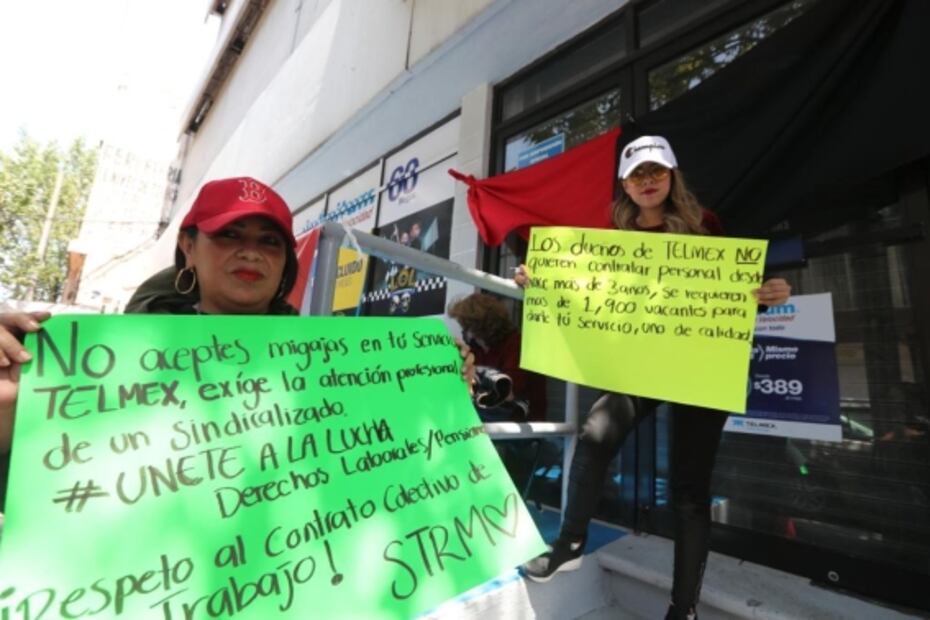 No aceptes migajas en tú servicio
TELMEX, exige la atención profesional
de un sindicalizado.
#UNETE A LA LUCHA
Derechos Laborales/Pensiones
¡Respeto al Contrato Colectivo de
Trabajo!
STRM
Los dueños de TELMEX NO
quieren contratar personal desde
hace mas de 3 años, se requieren
mas de 1,900 vacantes para
darte tú servicio, uno de calidad
B
Champion
60
LOL
Mismo
precio
$389
TELMEX